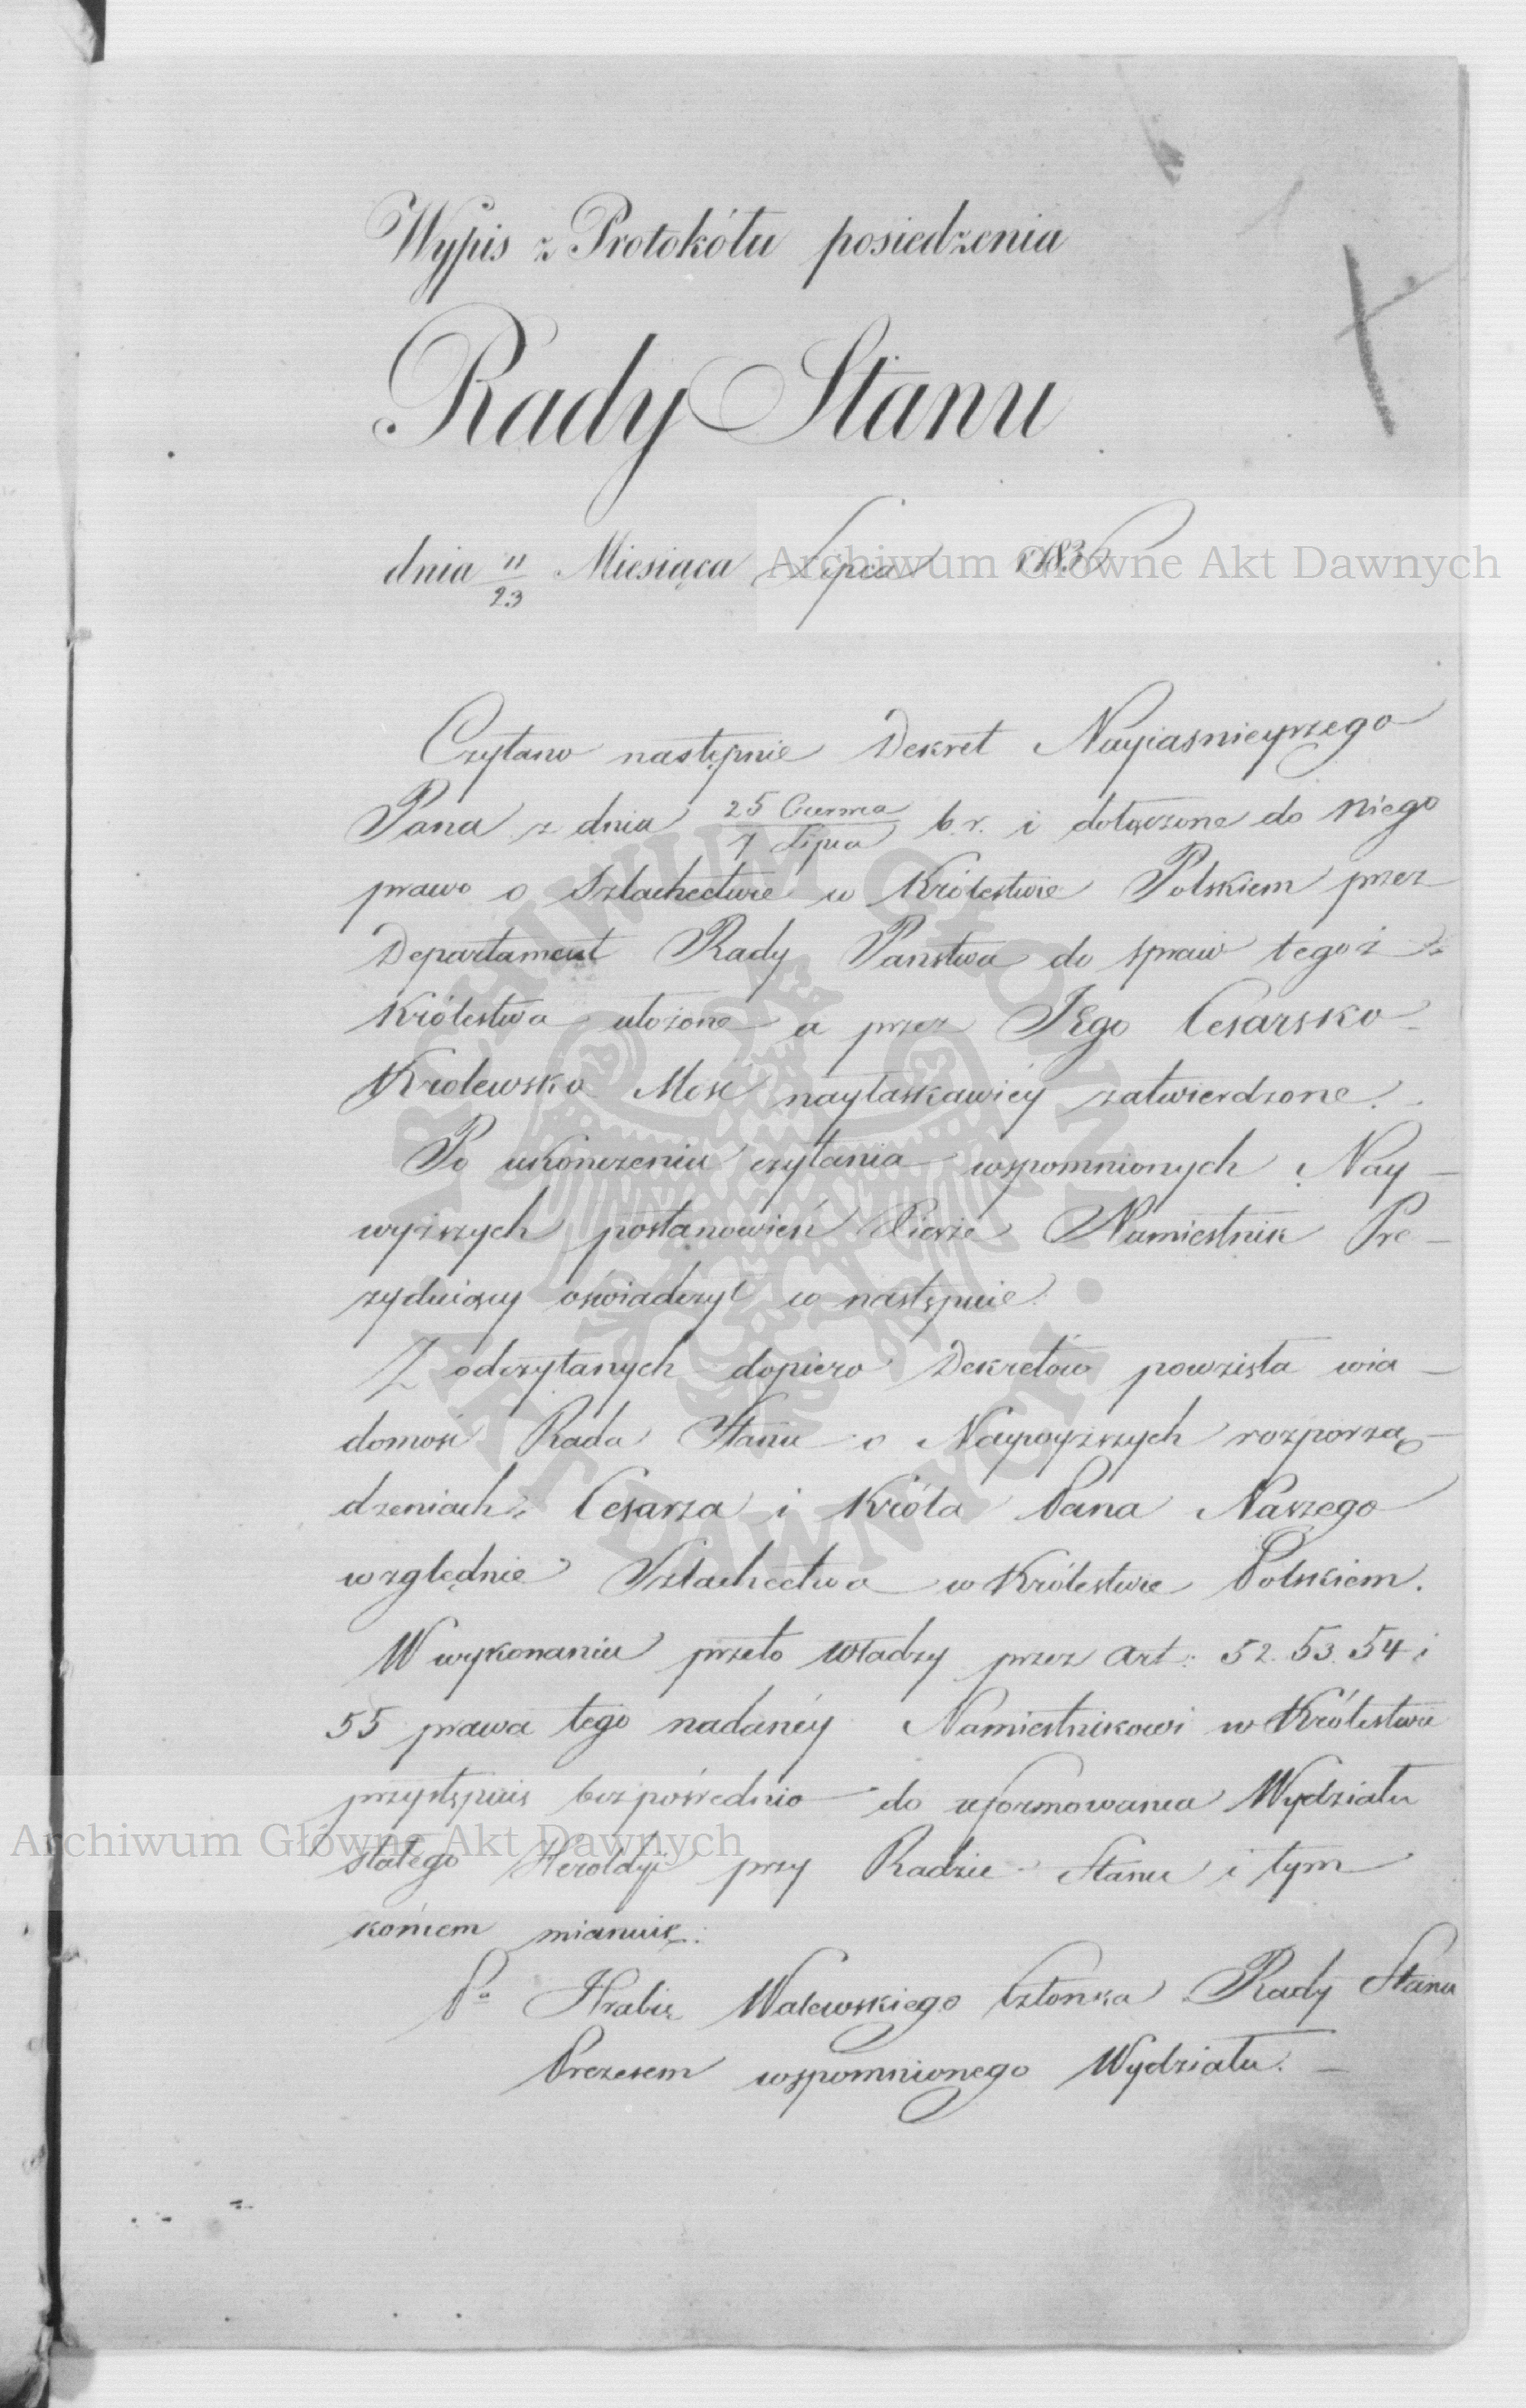 Wypis z Protokółu posiedzenia
Rady Stanu
dnia 11/23 Miesiąca Lipca 1836
Archiwum Główne Akt Dawnych
Czytano następnie Dekret Nayiaśnieyszego
Pana z dnia 25 Czerwca/7 Lipca b.r. i dołączone do niego
prawo o Szlachectwie w Królestwie Polskiem przez
Departament Rady Państwa do spraw tegoż
Królestwa ułożone a przez Jego Cesarsko
Królewsko Mość nayłaskawiéy zatwierdzone.
Po ukończeniu czytania wspomnionych Nay-
wyższych postanowień Xiąże Namiestnik Pre-
zyduiący oświadczył w następnie
Z odczytanych dopiero Dekretów powzięła wia-
domość Rada Stanu o Naywyższych rozporzą-
dzeniach Cesarza i Króla Pana Naszego
względnie Szlachectwa w Królestwie Polskiem.
W wykonaniu przeto władzy przez art: 52. 53. 54 i
55 prawa tego nadanéy Namiestnikowi w Królestwie
przystępuię bezpośrednio do uformowania Wydziału
Archiwum Główne Akt Dawnych
stałego Heroldyi przy Radzie Stanu i tym
końcem mianuię:
Po Hrabię Walewskiego Członka Rady Stanu
Prezesem wspomnionego Wydziału. -
ARCHIWUM GŁÓWNE AKT DAWNYCH